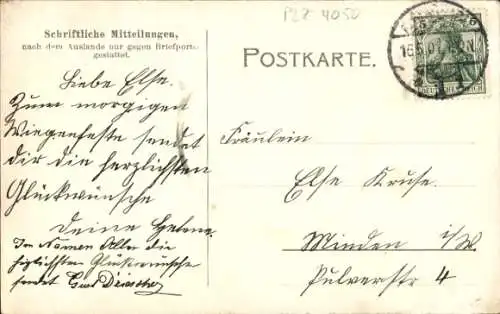 PZZ 4050
Schriftliche Mitteilungen,
nach dem Auslande nur gegen Briefporto
gestattet.
POSTKARTE.
5 5
DEUTSCHES REICH
Liebe Else.
Zum morgigen
Wiegenfeste sendet
dir die herzlichsten
Glückwünsche
Deine Helene.
Im Namen Aller die
herzlichsten Glückwünsche
sendet
Fräulein
Else Kruse.
Minden i/W.
Pulverstr 4